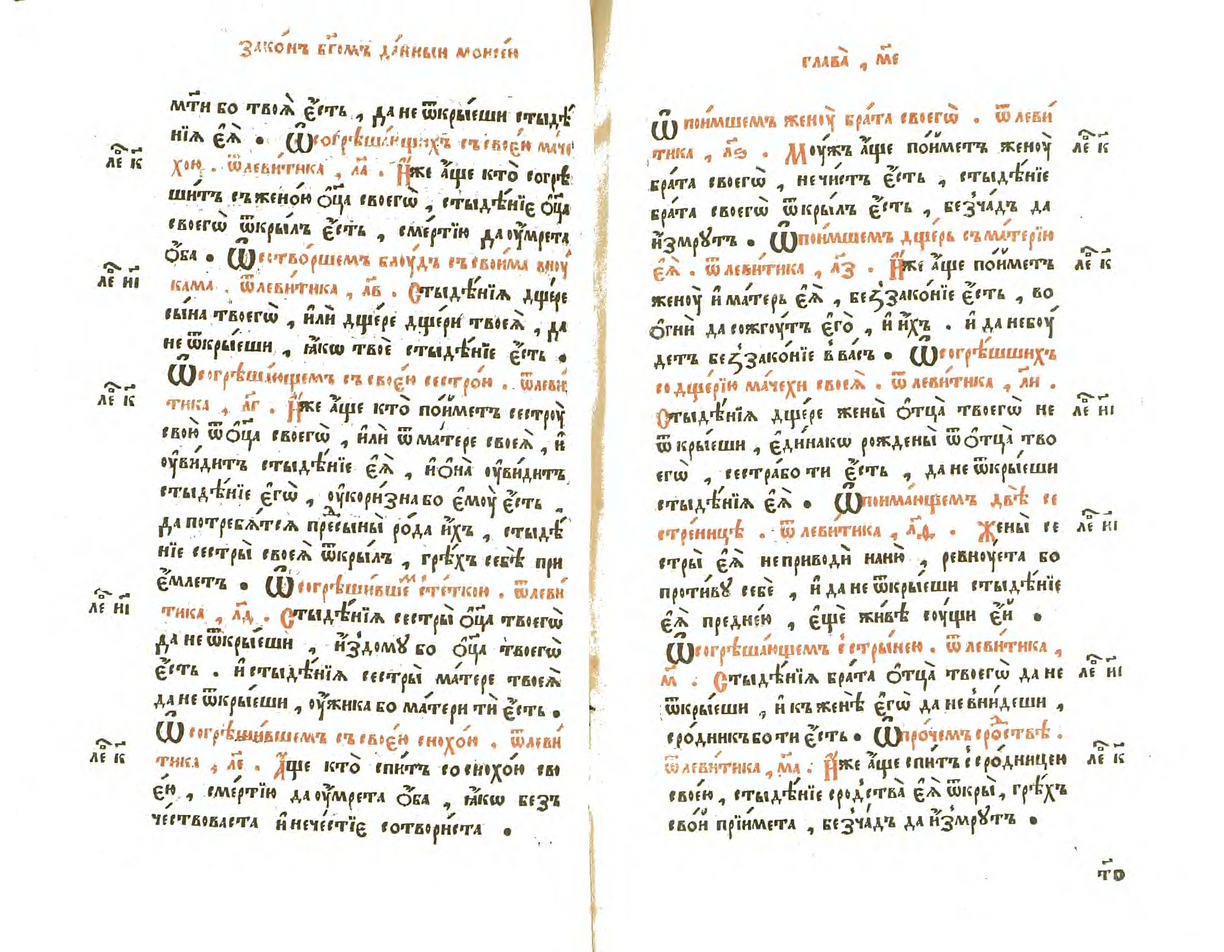 Зако́нъ бг҃омъ да́нныи моисе́и
мт҃и бо твоѧ̀ є҆́сть , да не ѿкры́еши стыдѣ́
нїѧ є҆ѧ̀ . Ѡ҆согрѣша́ющихъ съсвое́ю маче
ле҃ к҃
хою . ѿлеви́тика , л҃а . И҆́же а҆́ще кто̀ согрѣ
ши́тъ съжено́ю ѻ҆ц҃а̀ своегѡ̀ , стыдѣ́нїе ѻ҆ц҃а̀
своегѡ̀ ѿкры́лъ є҆́сть , сме́ртїю да ᲂу҆́мрета
ѻ҆́ба . Ѡ҆створшемъ блу́дъ съсвои́ма внꙋ
ле҃ н҃і
ка́ма . ѿлеви́тика , л҃в . Стыдѣ́нїѧ дще́ре
сы́на твоегѡ̀ , и҆лѝ дще́ре дще́ри твоеѧ̀ , да
не ѿкры́еши , ꙗ҆́кѡ твоѐ стыдѣ́нїе є҆́сть .
Ѡ҆согрѣша́ющемъ съсвое́ю сестро́ю . ѿлеви́
ле҃ к҃
тика , л҃г . И҆́же а҆́ще кто̀ по́йметъ сестрꙋ̀
свою̀ ѿ ѻ҆ц҃а̀ своегѡ̀ , и҆лѝ ѿ ма́тере своеѧ̀ , и҆
ᲂу҆ви́дитъ стыдѣ́нїе є҆ѧ̀ , и҆ ѻ҆на̀ ᲂу҆ви́дитъ
стыдѣ́нїе є҆гѡ̀ , ᲂу҆кори́зна бо є҆мꙋ̀ є҆́сть ,
да потребѧ́тсѧ пред̾сыны̀ ро́да и҆́хъ , стыдѣ́
нїе сестры̀ своеѧ̀ ѿкры́лъ , грѣ́хъ себѣ̀ при
є҆́млетъ . Ѡ҆согрѣши́вшемъ съте́ткою . ѿлеви́
ле҃ н҃і
тика , л҃д . Стыдѣ́нїѧ сестры̀ ѻ҆ц҃а̀ твоегѡ̀
да не ѿкры́еши , и҆здо́мꙋ бо ѻ҆ц҃а̀ твоегѡ̀
є҆́сть . и҆ стыдѣ́нїѧ сестры̀ ма́тере твоеѧ̀
да не ѿкры́еши , ᲂу҆́жика бо ма́тери тѝ є҆́сть .
Ѡ҆согрѣши́вшемъ съсвое́ю снохо́ю . ѿлеви́
ле҃ к҃
тика , л҃е . А҆́ще кто̀ спи́тъ со снохо́ю сво
е́ю , сме́ртїю да ᲂу҆́мрета ѻ҆́ба , ꙗ҆́кѡ безъ
че́ствоваста и҆ нече́стїе сотвори́ста .
глава̀ , м҃е
Ѡ҆ пои́мшемъ женꙋ̀ бра́та своегѡ̀ . ѿ леви́
тика , л҃ѕ . Мꙋ́жъ а҆́ще по́йметъ женꙋ̀
ле҃ к҃
бра́та своегѡ̀ , нечи́стъ є҆́сть , стыдѣ́нїе
бра́та своегѡ̀ ѿкры́лъ є҆́сть , безча́дъ да
и҆́змрꙋтъ . Ѡ҆пои́мшемъ дще́рь съма́терїю
є҆ѧ̀ . ѿ леви́тика , л҃з . И҆́же а҆́ще по́йметъ
ле҃ к҃
женꙋ̀ и҆ ма́терь є҆ѧ̀ , беззако́нїе є҆́сть , во
ѻ҆гнѝ да сожгꙋ́тъ є҆го̀ , и҆ и҆́хъ . и҆ да небꙋ́
детъ беззако́нїе в ва́съ . Ѡ҆согрѣ́шшихъ
со дще́рїю ма́чехи своеѧ̀ . ѿ леви́тика , л҃и .
Стыдѣ́нїѧ дще́ре жены̀ ѻ҆тца̀ твоегѡ̀ не
ле҃ н҃і
ѿкры́еши , є҆ди́накѡ рождены̀ ѿ ѻ҆тца̀ тво
егѡ̀ , сестра́ бо ти є҆́сть , да не ѿкры́еши
стыдѣ́нїѧ є҆ѧ̀ . Ѡ҆пои́мающемъ двѣ̀ се
стре́ницѣ . ѿ леви́тика , л҃ѳ . Жены̀ се
ле҃ н҃і
стры̀ є҆ѧ̀ неприводѝ наню̀ , ревнꙋ́ета бо
проти́вꙋ себѐ , и҆ да не ѿкры́еши стыдѣ́нїе
є҆ѧ̀ предне́ю , є҆щѐ жи́вѣ сꙋ́щи є҆́й .
Ѡ҆согрѣша́ющемъ състры́нею . ѿ леви́тика ,
м҃ . Стыдѣ́нїѧ бра́та ѻ҆тца̀ твоегѡ̀ да не
ле҃ н҃і
ѿкры́еши , и҆ къ женѣ̀ є҆гѡ̀ да не вни́деши ,
сро́дникъ бо ти є҆́сть . Ѡ҆про́чемъ сро́дствѣ .
ѿлеви́тика , м҃а . И҆́же а҆́ще спи́тъ съсро́дницею
ле҃ к҃
свое́ю , стыдѣ́нїе сро́дства є҆ѧ̀ ѿкры̀ , грѣ́хъ
сво́й прїи́мета , безча́дъ да и҆́змрꙋтъ .
т҃о